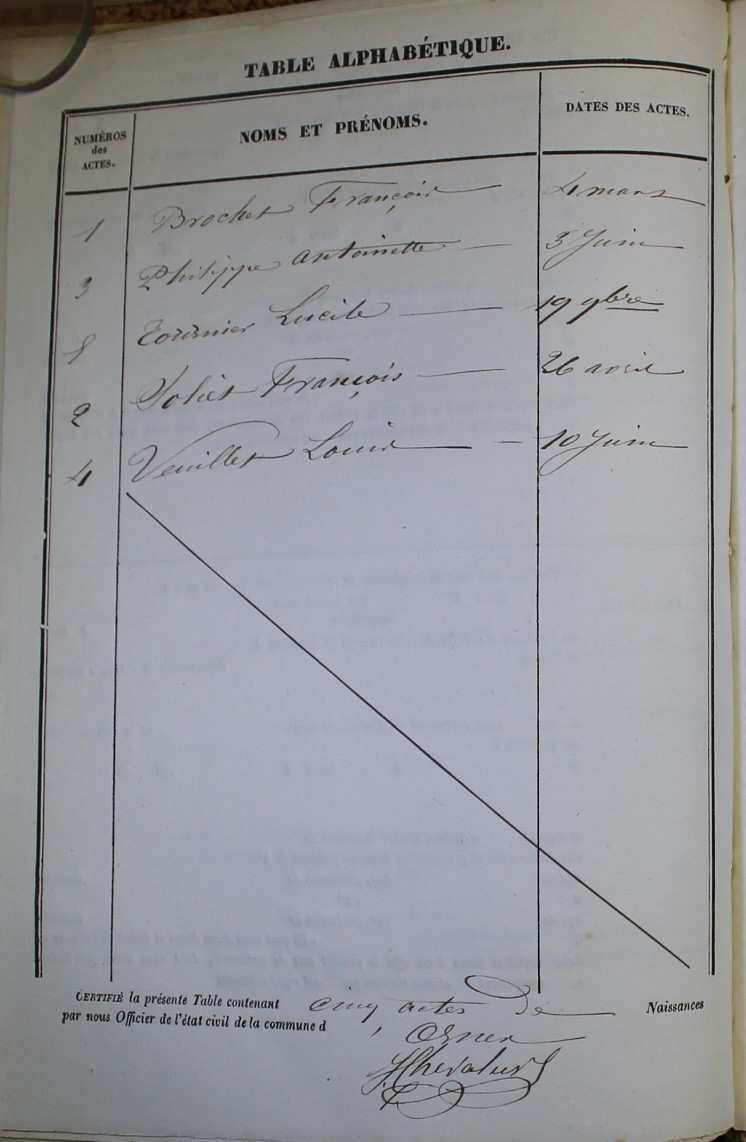 TABLE ALPHABÉTIQUE.
NUMÉROS des ACTES. NOMS ET PRÉNOMS. DATES DES ACTES.
1 Brochet François 4 mars
3 Philippe Antoinette 3 Juin
5 Tournier Lucile 19 9bre
2 Joliet François 26 avril
4 Veuillet Louis 10 Juin
CERTIFIÉ la présente Table contenant cinq actes de Naissances
par nous Officier de l'état civil de la commune d